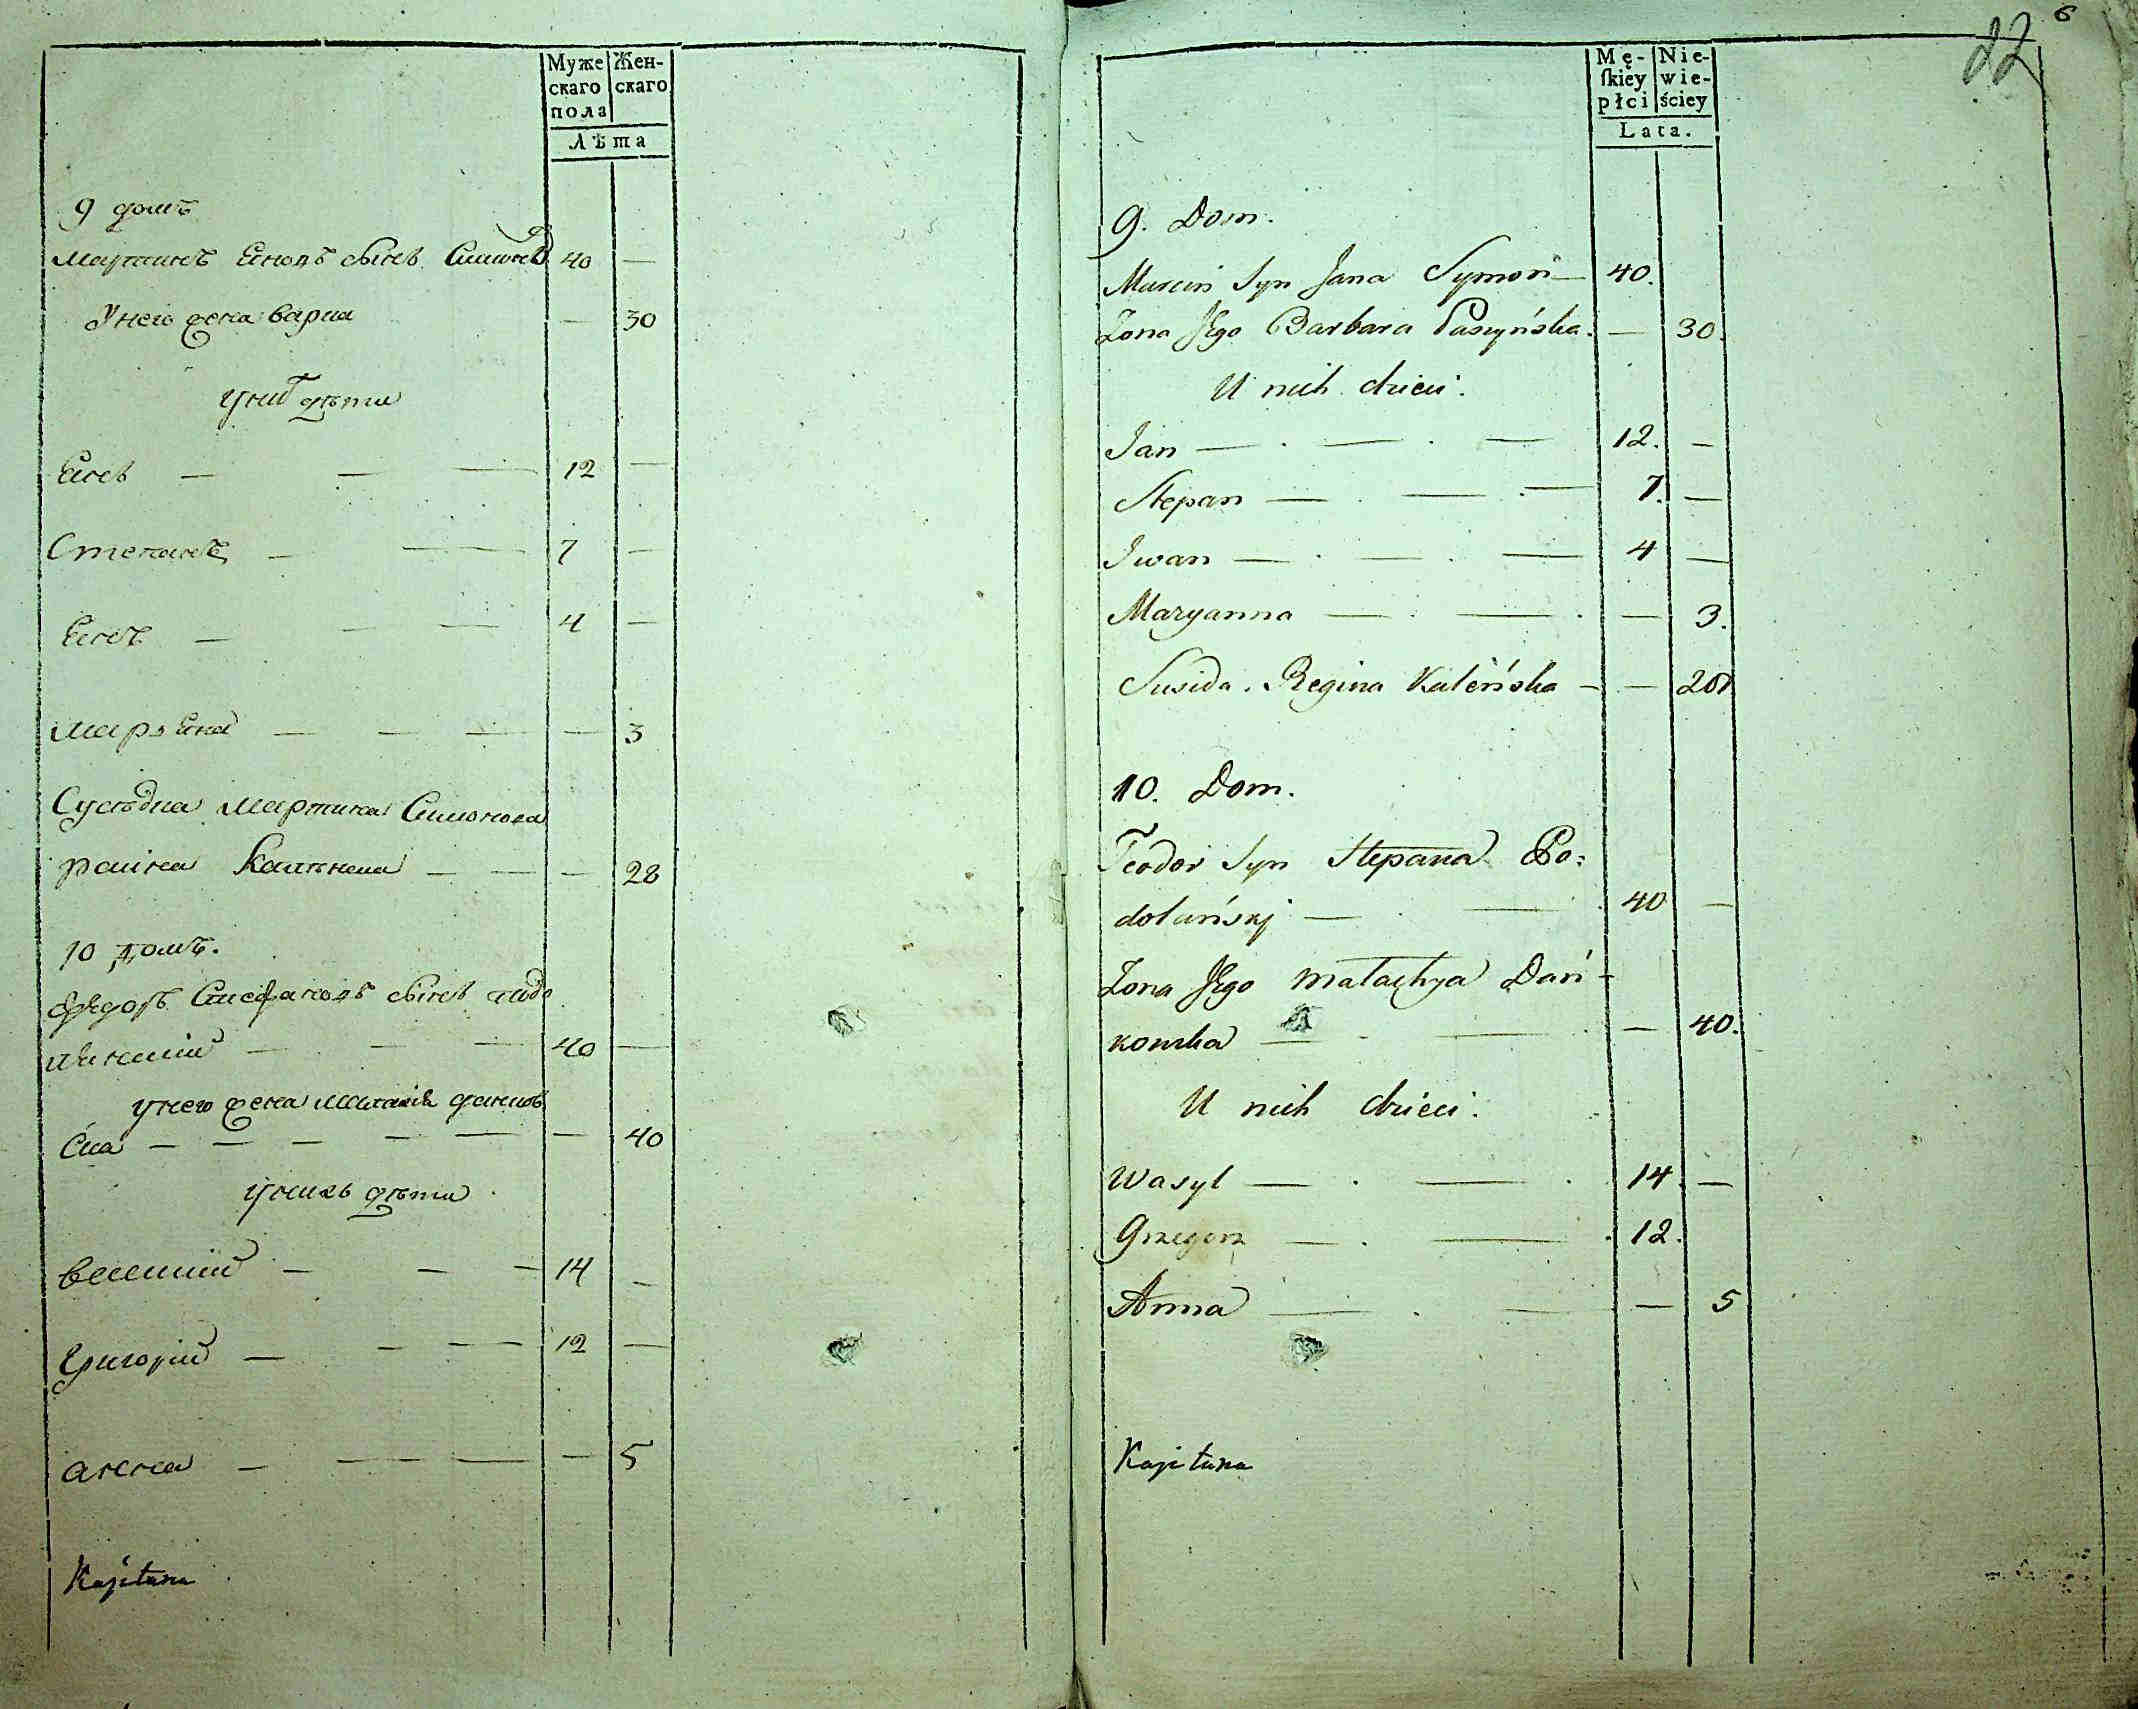 Муже Жен-
скаго скаго
пола
Лѣта
9 домъ
Мартинъ Яновъ сынъ Симоновъ 40 —
У него жена варка — 30
У них дѣти
Янъ — — — 12 —
Степанъ — — 7 —
Янъ — — — 4 —
Марьяна — — — — 3
Сусѣдка Мартина Симонова
раина — — — 28
10 домъ.
Федоръ Стефановъ сынъ подо
— — — 40 —
У него жена
— — — — — — 40
У нихъ дѣти
Василий — — — 14 —
Григорий — — — 12 —
анна — — — — — 5
Kajetana
22 6
Mę- Nie-
ſkiey wie-
płci ściey
Lata.
9. Dom.
Marcin Syn Jana Symon — 40.
Zona Jego Barbara Paszyńska. — 30.
U nich dzieci:
Jan — . — . — 12. —
Stepan — . — . — 7. —
Iwan — . — . — 4 —
Maryanna — . — . — 3.
Susida. Regina Kaleńska — — 28
10. Dom.
Teodor Syn Stepana Po:
dolański — . — . 40 —
Zona Jego Małachya Dań-
kowska — . — . — 40.
U nich dzieci:
Wasyl — . — . 14. —
Grzegorz — . — . 12.
Anna — . — — 5
Kajetana